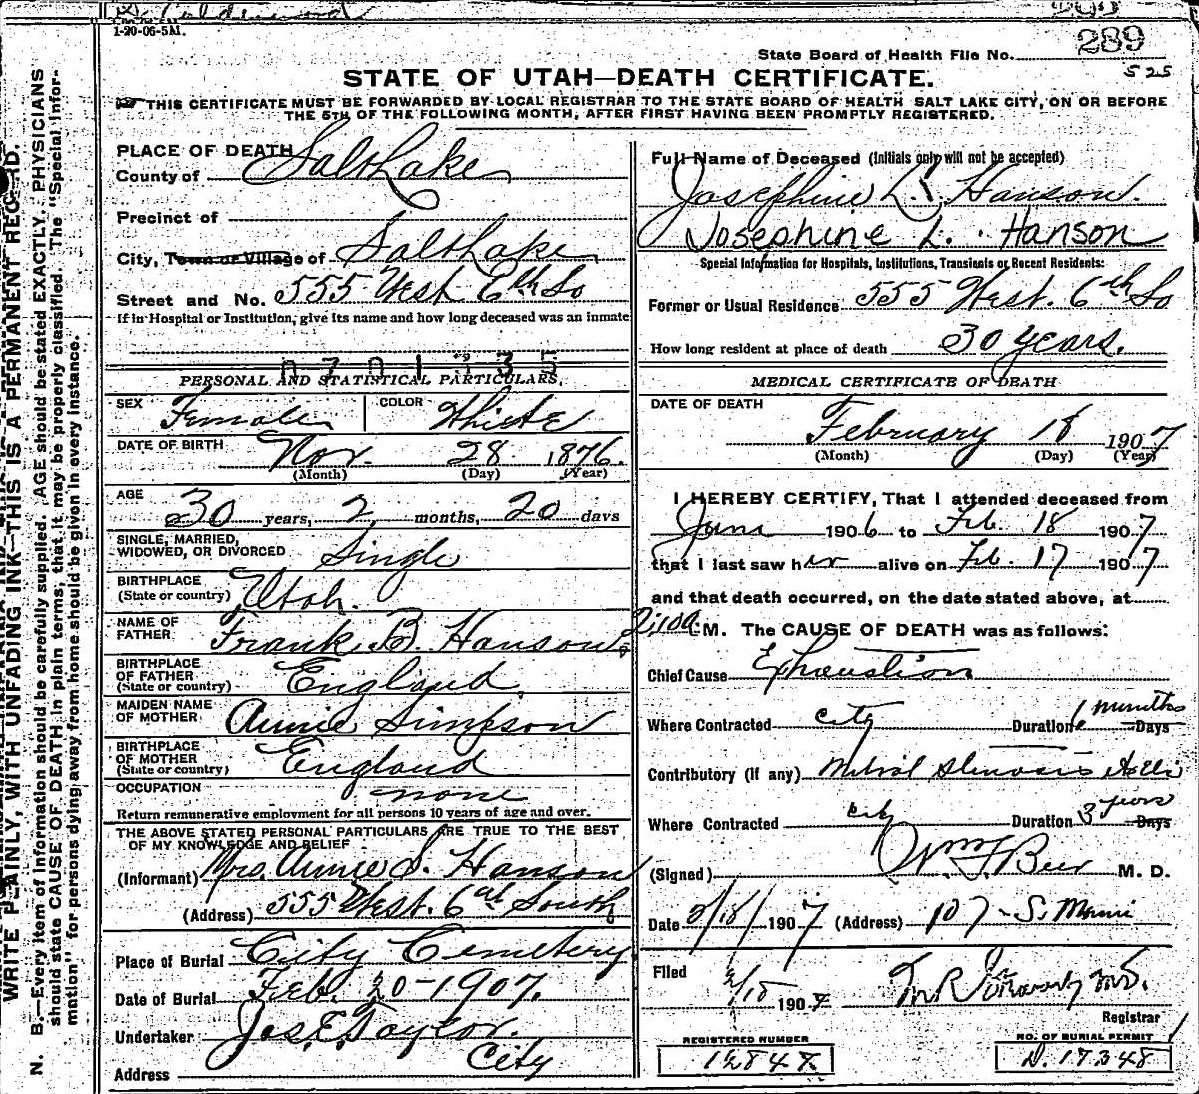 1-20-06-5M.
289
State Board of Health File No.
525
STATE OF UTAH—DEATH CERTIFICATE.
THIS CERTIFICATE MUST BE FORWARDED BY LOCAL REGISTRAR TO THE STATE BOARD OF HEALTH SALT LAKE CITY, ON OR BEFORE
THE 5TH OF THE FOLLOWING MONTH, AFTER FIRST HAVING BEEN PROMPTLY REGISTERED.
WRITE PLAINLY, WITH UNFADING INK—THIS IS A PERMANENT RECORD.
N. B.—Every item of information should be carefully supplied. AGE should be stated EXACTLY. PHYSICIANS
should state CAUSE OF DEATH in plain terms; that it may be properly classified. The "Special Infor-
mation" for persons dying away from home should be given in every instance.
PLACE OF DEATH
County of Salt Lake
Precinct of
City, Town or Village of Salt Lake
Street and No. 555 West 6th So
If in Hospital or Institution, give its name and how long deceased was an inmate
0701335
PERSONAL AND STATISTICAL PARTICULARS.
SEX Female COLOR White
DATE OF BIRTH Nov. 28 1876.
(Month) (Day) (Year)
AGE 30 years, 2 months, 20 days
SINGLE, MARRIED,
WIDOWED, OR DIVORCED Single
BIRTHPLACE
(State or country) Utah.
NAME OF
FATHER Frank B. Hanson
BIRTHPLACE
OF FATHER England
(State or country)
MAIDEN NAME
OF MOTHER Annie Simpson
BIRTHPLACE
OF MOTHER England
(State or country)
OCCUPATION none
Return remunerative employment for all persons 10 years of age and over.
THE ABOVE STATED PERSONAL PARTICULARS ARE TRUE TO THE BEST
OF MY KNOWLEDGE AND BELIEF
(Informant) Mrs. Annie S. Hanson
(Address) 555 West. 6th South
Place of Burial City Cemetery
Date of Burial Feb. 20-1907.
Undertaker Jos. E. Taylor.
Address City
Full Name of Deceased (Initials only will not be accepted)
Josephine L. Hanson.
Josephine L. Hanson
Special Information for Hospitals, Institutions, Transients or Recent Residents:
Former or Usual Residence 555 West. 6th So
How long resident at place of death 30 years.
MEDICAL CERTIFICATE OF DEATH
DATE OF DEATH
February 18 1907
(Month) (Day) (Year)
I HEREBY CERTIFY, That I attended deceased from
June 1906 to Feb. 18 1907
that I last saw her alive on Feb. 17 1907
and that death occurred, on the date stated above, at
M. The CAUSE OF DEATH was as follows:
Chief Cause Exhaustion
Where Contracted City Duration months Days
Contributory (if any) Mitral Stenosis
Where Contracted City Duration 3 years Days
(Signed) Wm F Beer M. D.
Date 2/18/ 1907 (Address) 107 S. Main
Filed 1907
Registrar
REGISTERED NUMBER
NO. OF BURIAL PERMIT
D. 17348